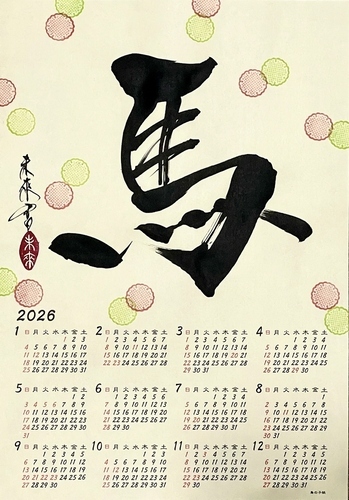 馬
2026
1 日 月 火 水 木 金 土
1 2 3
4 5 6 7 8 9 10
11 12 13 14 15 16 17
18 19 20 21 22 23 24
25 26 27 28 29 30 31
2 日 月 火 水 木 金 土
1 2 3 4 5 6 7
8 9 10 11 12 13 14
15 16 17 18 19 20 21
22 23 24 25 26 27 28
3 日 月 火 水 木 金 土
1 2 3 4 5 6 7
8 9 10 11 12 13 14
15 16 17 18 19 20 21
22 23 24 25 26 27 28
29 30 31
4 日 月 火 水 木 金 土
1 2 3 4
5 6 7 8 9 10 11
12 13 14 15 16 17 18
19 20 21 22 23 24 25
26 27 28 29 30
5 日 月 火 水 木 金 土
1 2
3 4 5 6 7 8 9
10 11 12 13 14 15 16
17 18 19 20 21 22 23
24 25 26 27 28 29 30
31
6 日 月 火 水 木 金 土
1 2 3 4 5 6
7 8 9 10 11 12 13
14 15 16 17 18 19 20
21 22 23 24 25 26 27
28 29 30
7 日 月 火 水 木 金 土
1 2 3 4
5 6 7 8 9 10 11
12 13 14 15 16 17 18
19 20 21 22 23 24 25
26 27 28 29 30 31
8 日 月 火 水 木 金 土
1
2 3 4 5 6 7 8
9 10 11 12 13 14 15
16 17 18 19 20 21 22
23 24 25 26 27 28 29
30 31
9 日 月 火 水 木 金 土
1 2 3 4 5
6 7 8 9 10 11 12
13 14 15 16 17 18 19
20 21 22 23 24 25 26
27 28 29 30
10 日 月 火 水 木 金 土
1 2 3
4 5 6 7 8 9 10
11 12 13 14 15 16 17
18 19 20 21 22 23 24
25 26 27 28 29 30 31
11 日 月 火 水 木 金 土
1 2 3 4 5 6 7
8 9 10 11 12 13 14
15 16 17 18 19 20 21
22 23 24 25 26 27 28
29 30
12 日 月 火 水 木 金 土
1 2 3 4 5
6 7 8 9 10 11 12
13 14 15 16 17 18 19
20 21 22 23 24 25 26
27 28 29 30 31